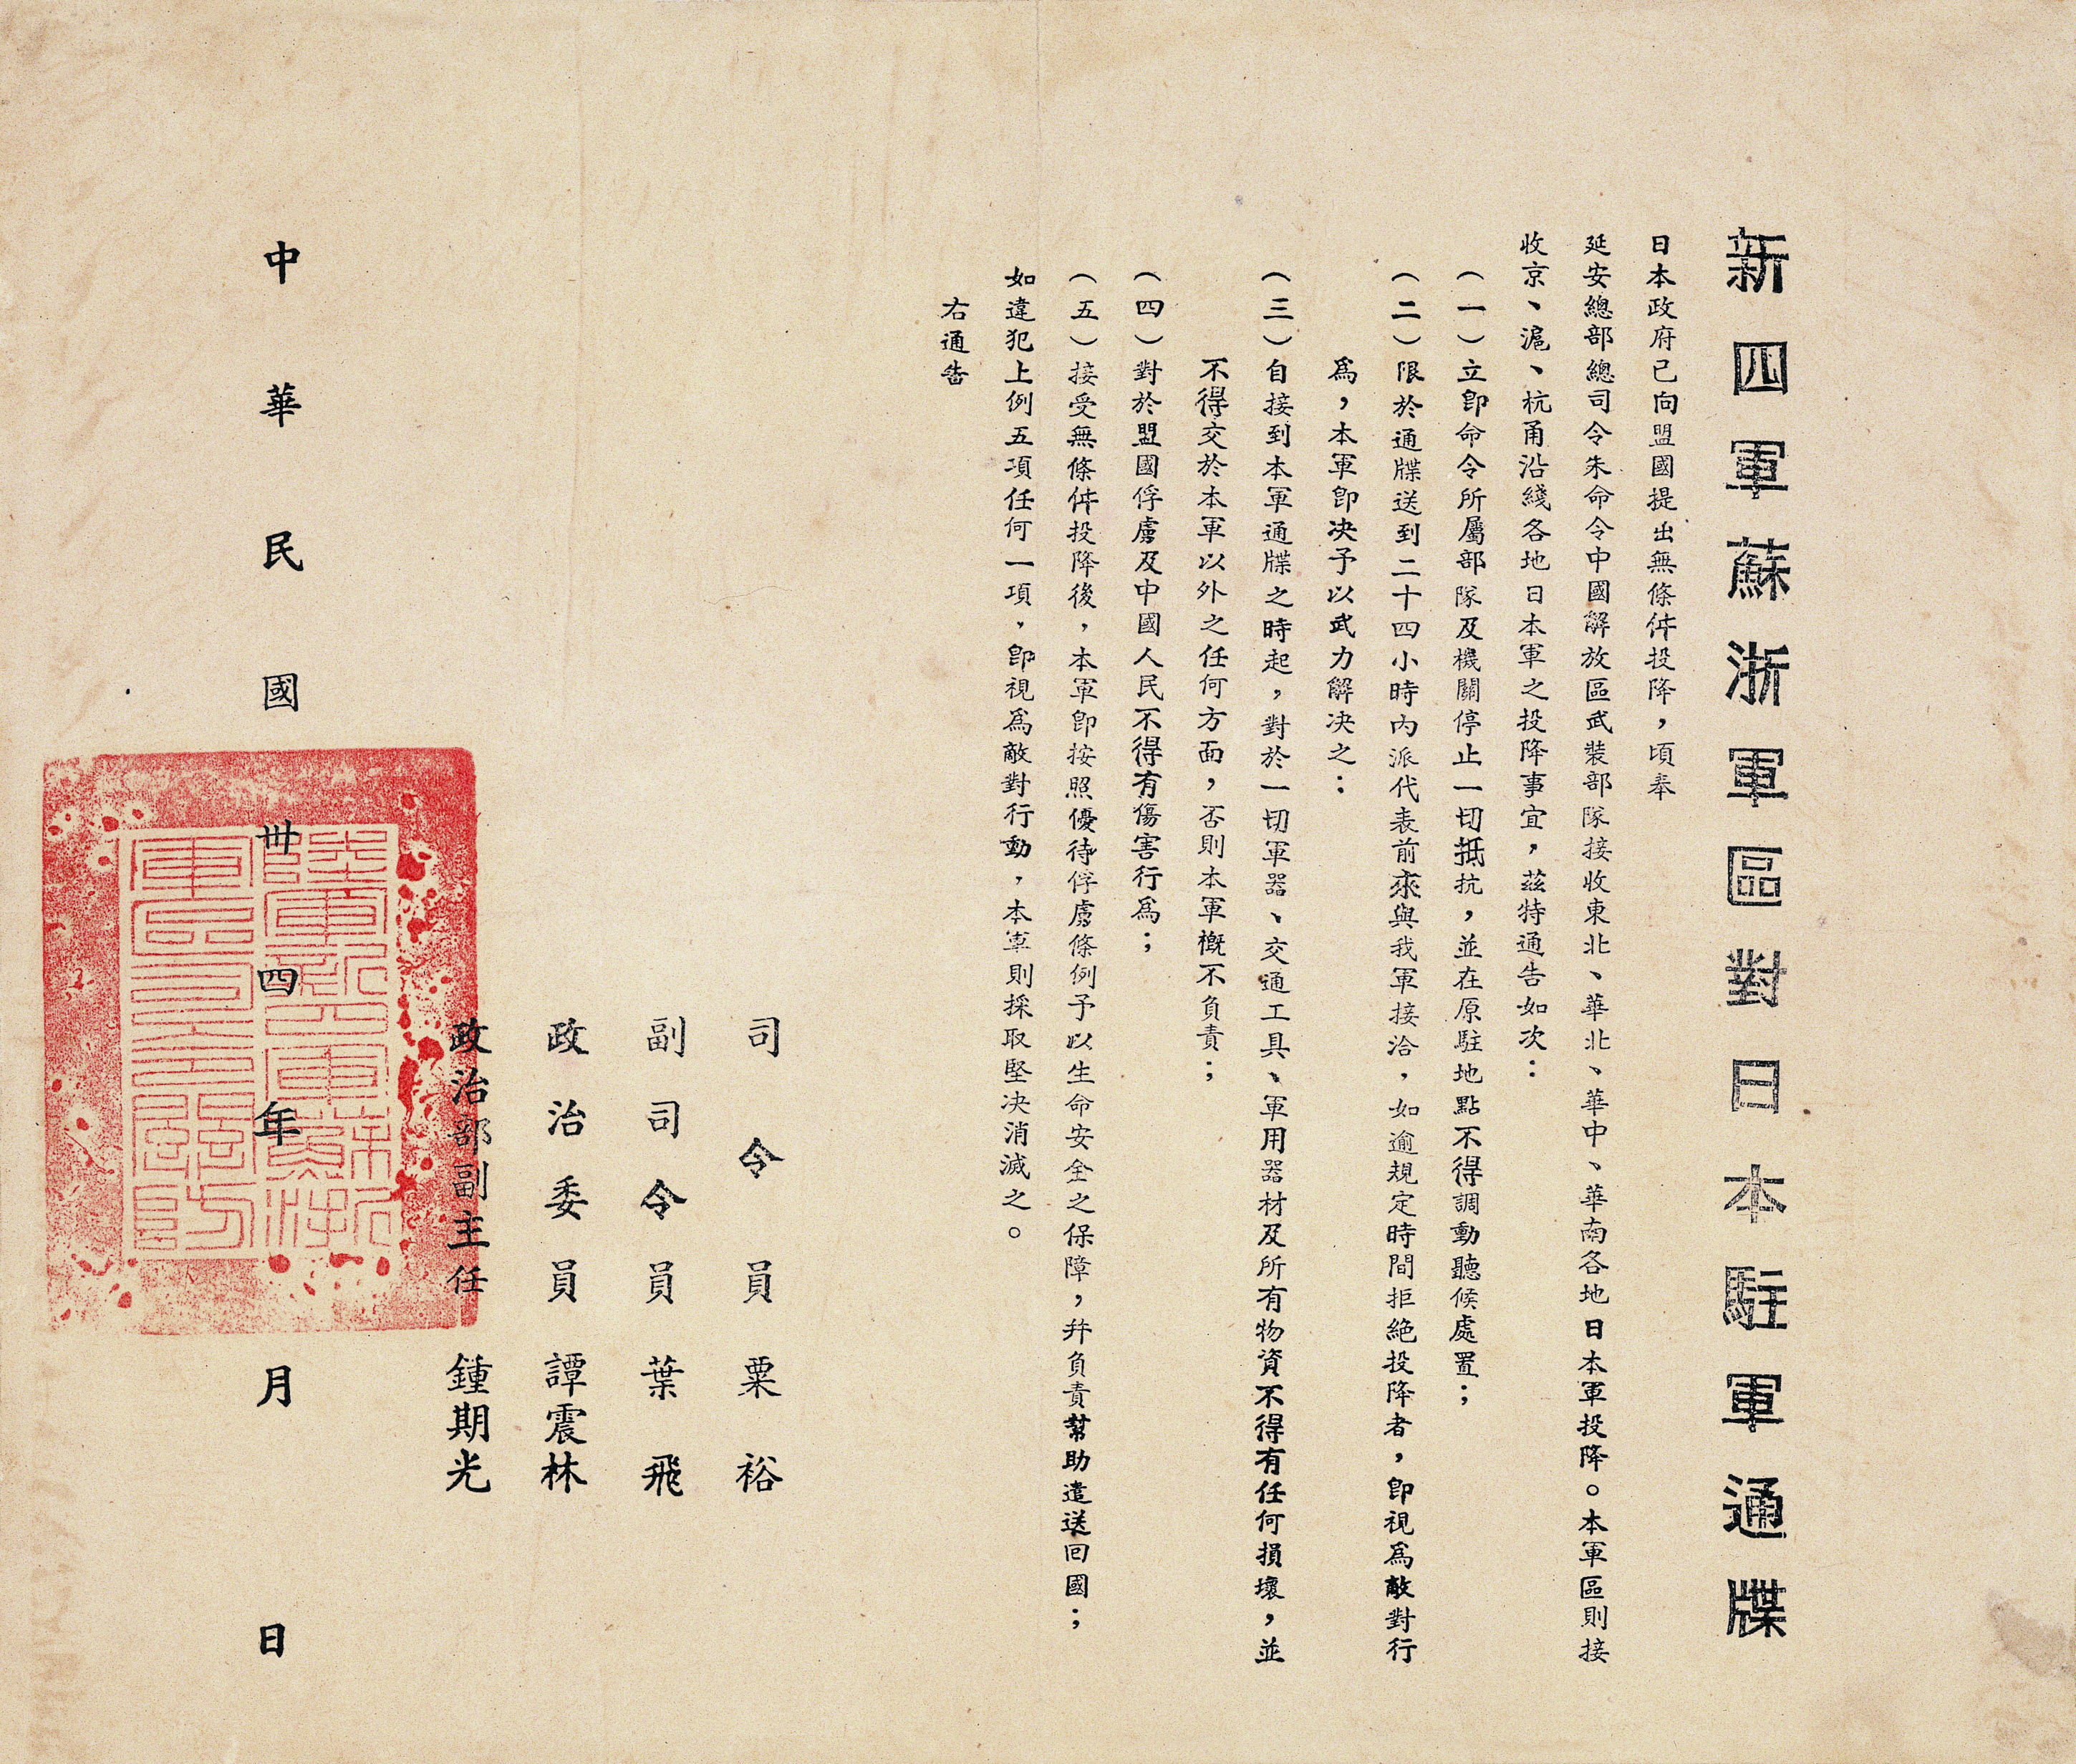 新四軍蘇浙軍區對日本駐軍通牒
日本政府已向盟國提出無條件投降，頃奉
延安總部總司令朱命令中國解放區武裝部隊接收東北、華北、華中、華南各地日本軍投降。本軍區則接
收京、滬、杭甬沿綫各地日本軍之投降事宜，茲特通告如次：
（一）立即命令所屬部隊及機關停止一切抵抗，並在原駐地點不得調動聽候處置；
（二）限於通牒送到二十四小時內派代表前來與我軍接洽，如逾規定時間拒絕投降者，即視爲敵對行
爲，本軍即決予以武力解决之：
（三）自接到本軍通牒之時起，對於一切軍器、交通工具、軍用器材及所有物資不得有任何損壞，並
不得交於本軍以外之任何方面，否則本軍概不負責；
（四）對於盟國俘虜及中國人民不得有傷害行爲；
（五）接受無條件投降後，本軍即按照優待俘虜條例予以生命安全之保障，并負責幫助遣送回國；
如違犯上例五項任何一項，即視爲敵對行動，本軍則採取堅決消滅之。
右通告
司令員粟裕
副司令員葉飛
政治委員譚震林
政治部副主任鍾期光
中華民國卅四年月日